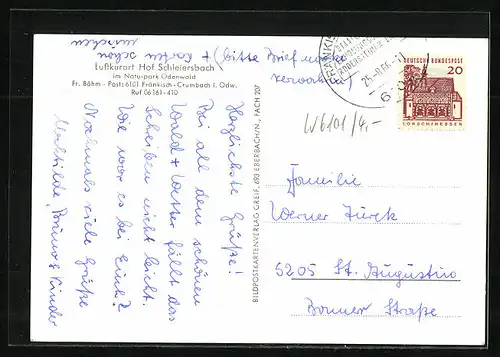 + (bitte Brief vorher
verwahren)
+ Karten schön
mischen
Luftkurort Hof Schleiersbach
im Naturpark Odenwald
Fr. Böhm - Post: 6101 Fränkisch-Crumbach i. Odw.
Ruf 06161-410
Herzlichste Grüße!
Bei all dem schönen
Wald + Wetter fällt das
Schreiben nicht leicht.
Wie war es bei Euch?
Nochmals viele Grüße
Mathilde, Bruno & Kinder
BILDPOSTKARTENVERLAG GREIF, 693 EBERBACH/N., FACH 207
DEUTSCHE BUNDESPOST
20
LORSCH/HESSEN
W6101/4,-
Familie
Werner Türck
5205 St. Augustino
Bonner Straße